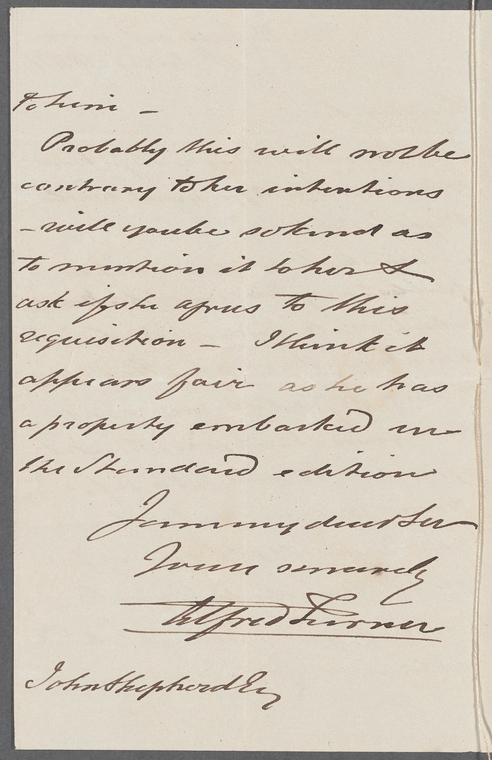 to him –
Probably this will not be
contrary to her intentions
– will you be so kind as
to mention it to her &
ask if she agrees to this
requisition – I think it
appears fair as he has
a property embarked in
the Standard edition
I am my dear Sir
Yours sincerely
Alfred Turner
John Shepherd Esq